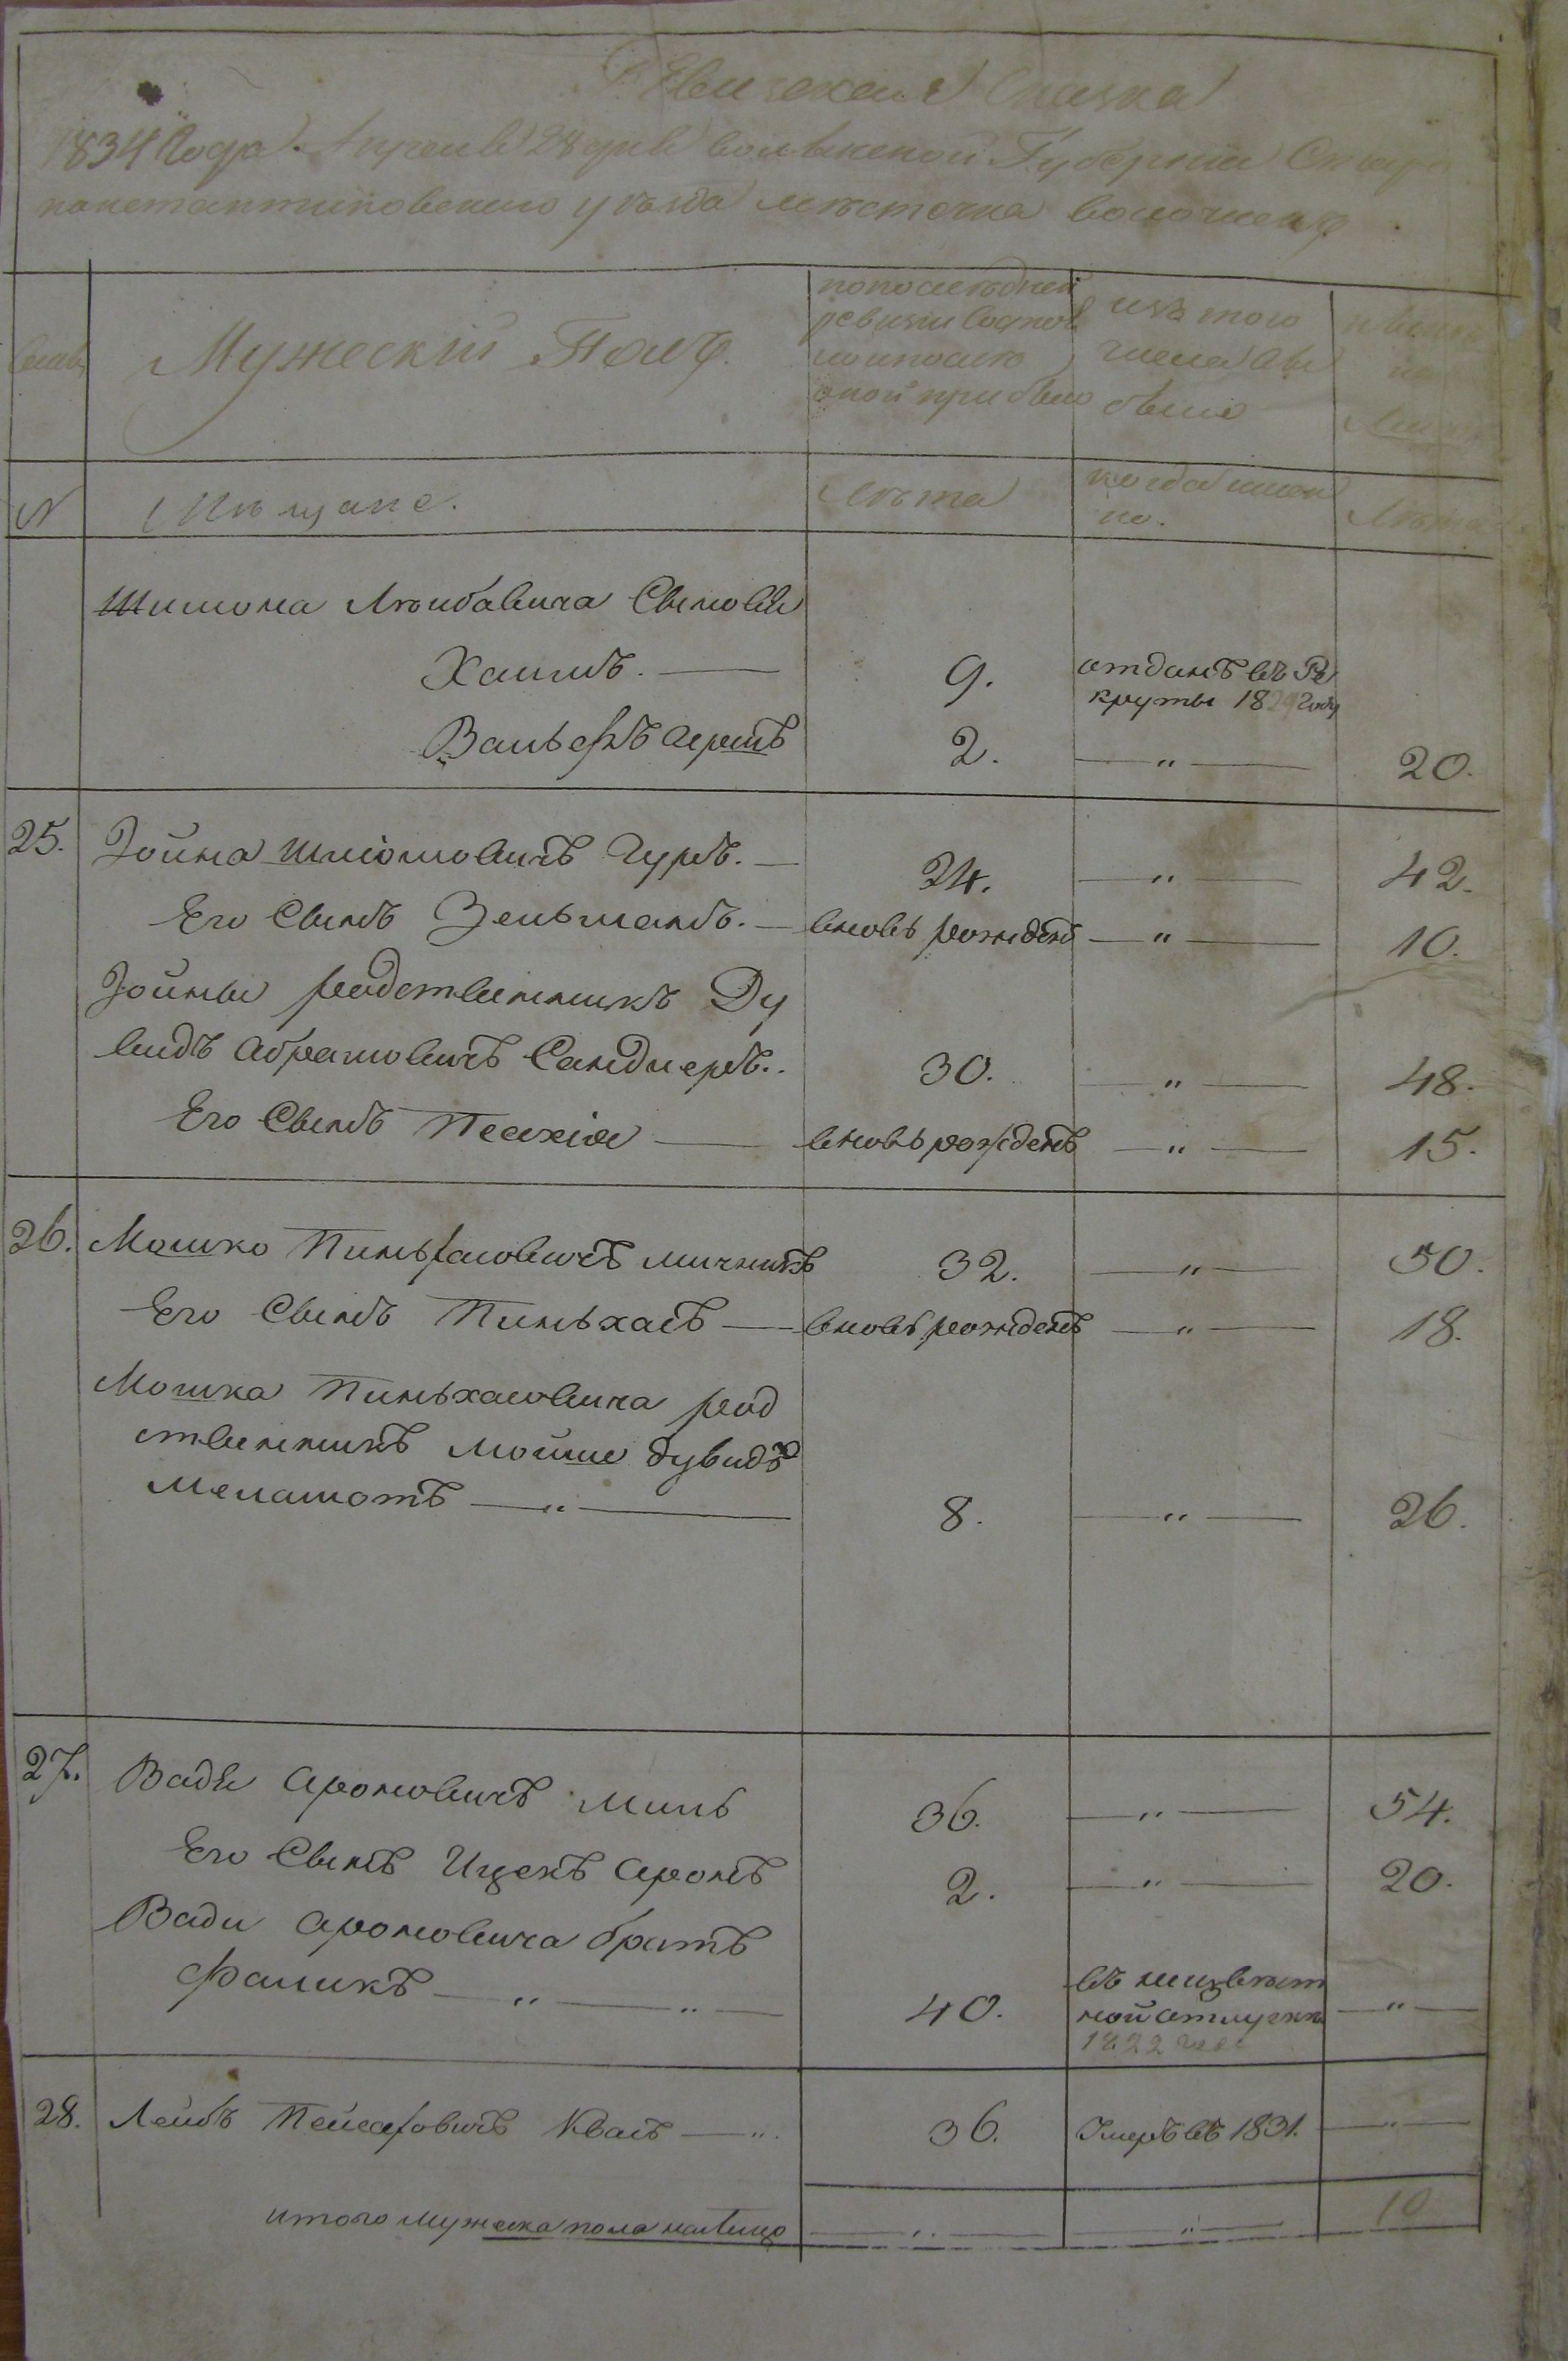 Ревизская Сказка
1834 Года. Апреля 28 дня Волынской Губернии Старо
константиновского уезда местечка Волочиск
Семьи
Мужеский Полъ.
по последней
ревизии состоя
ло и после
оной прибыло
изъ того
числа вы
было
ныне
на
лицо
N
Мѣщане.
Лѣта
когда имен
но.
Лѣта
Шимона Лейбовича Сыновья
Хаимъ. — 9. отданъ въ Ре
круты 1829 году
Вальфъ Гершъ 2. — " — 20.
25. Іойна Шліомовичъ Гурв. — 24. — " — 42.
Его Сынъ Зельманъ. — вновь рожденъ — " — 10.
Іойны родственникъ Ду
видъ Абрамовичъ Сандлеръ. 30. — " — 48.
Его Сынъ Песахія — вновь рожденъ — " — 15.
26. Мошко Пинхасовичъ Мичникъ 32. — " — 50.
Его Сынъ Пиньхасъ — вновь рожденъ — " — 18.
Мошка Пиньхасовича род
ственникъ Мойше Дувидъ
Меламотъ — " — 8. — " — 26.
27. Вадя Ароновичъ Миль 36. — " — 54.
Его Сынъ Ицекъ Аронъ 2. — " — 20.
Вади Ароновича братъ
Фаликъ — " — " — 40. въ неизвѣст
ной отлучкѣ — " —
1822 года
28. Лейбъ Пейсаховичъ Квасъ — " 36. Умеръ въ 1831. — " —
итого мужеска пола налицо — " — — " — 10